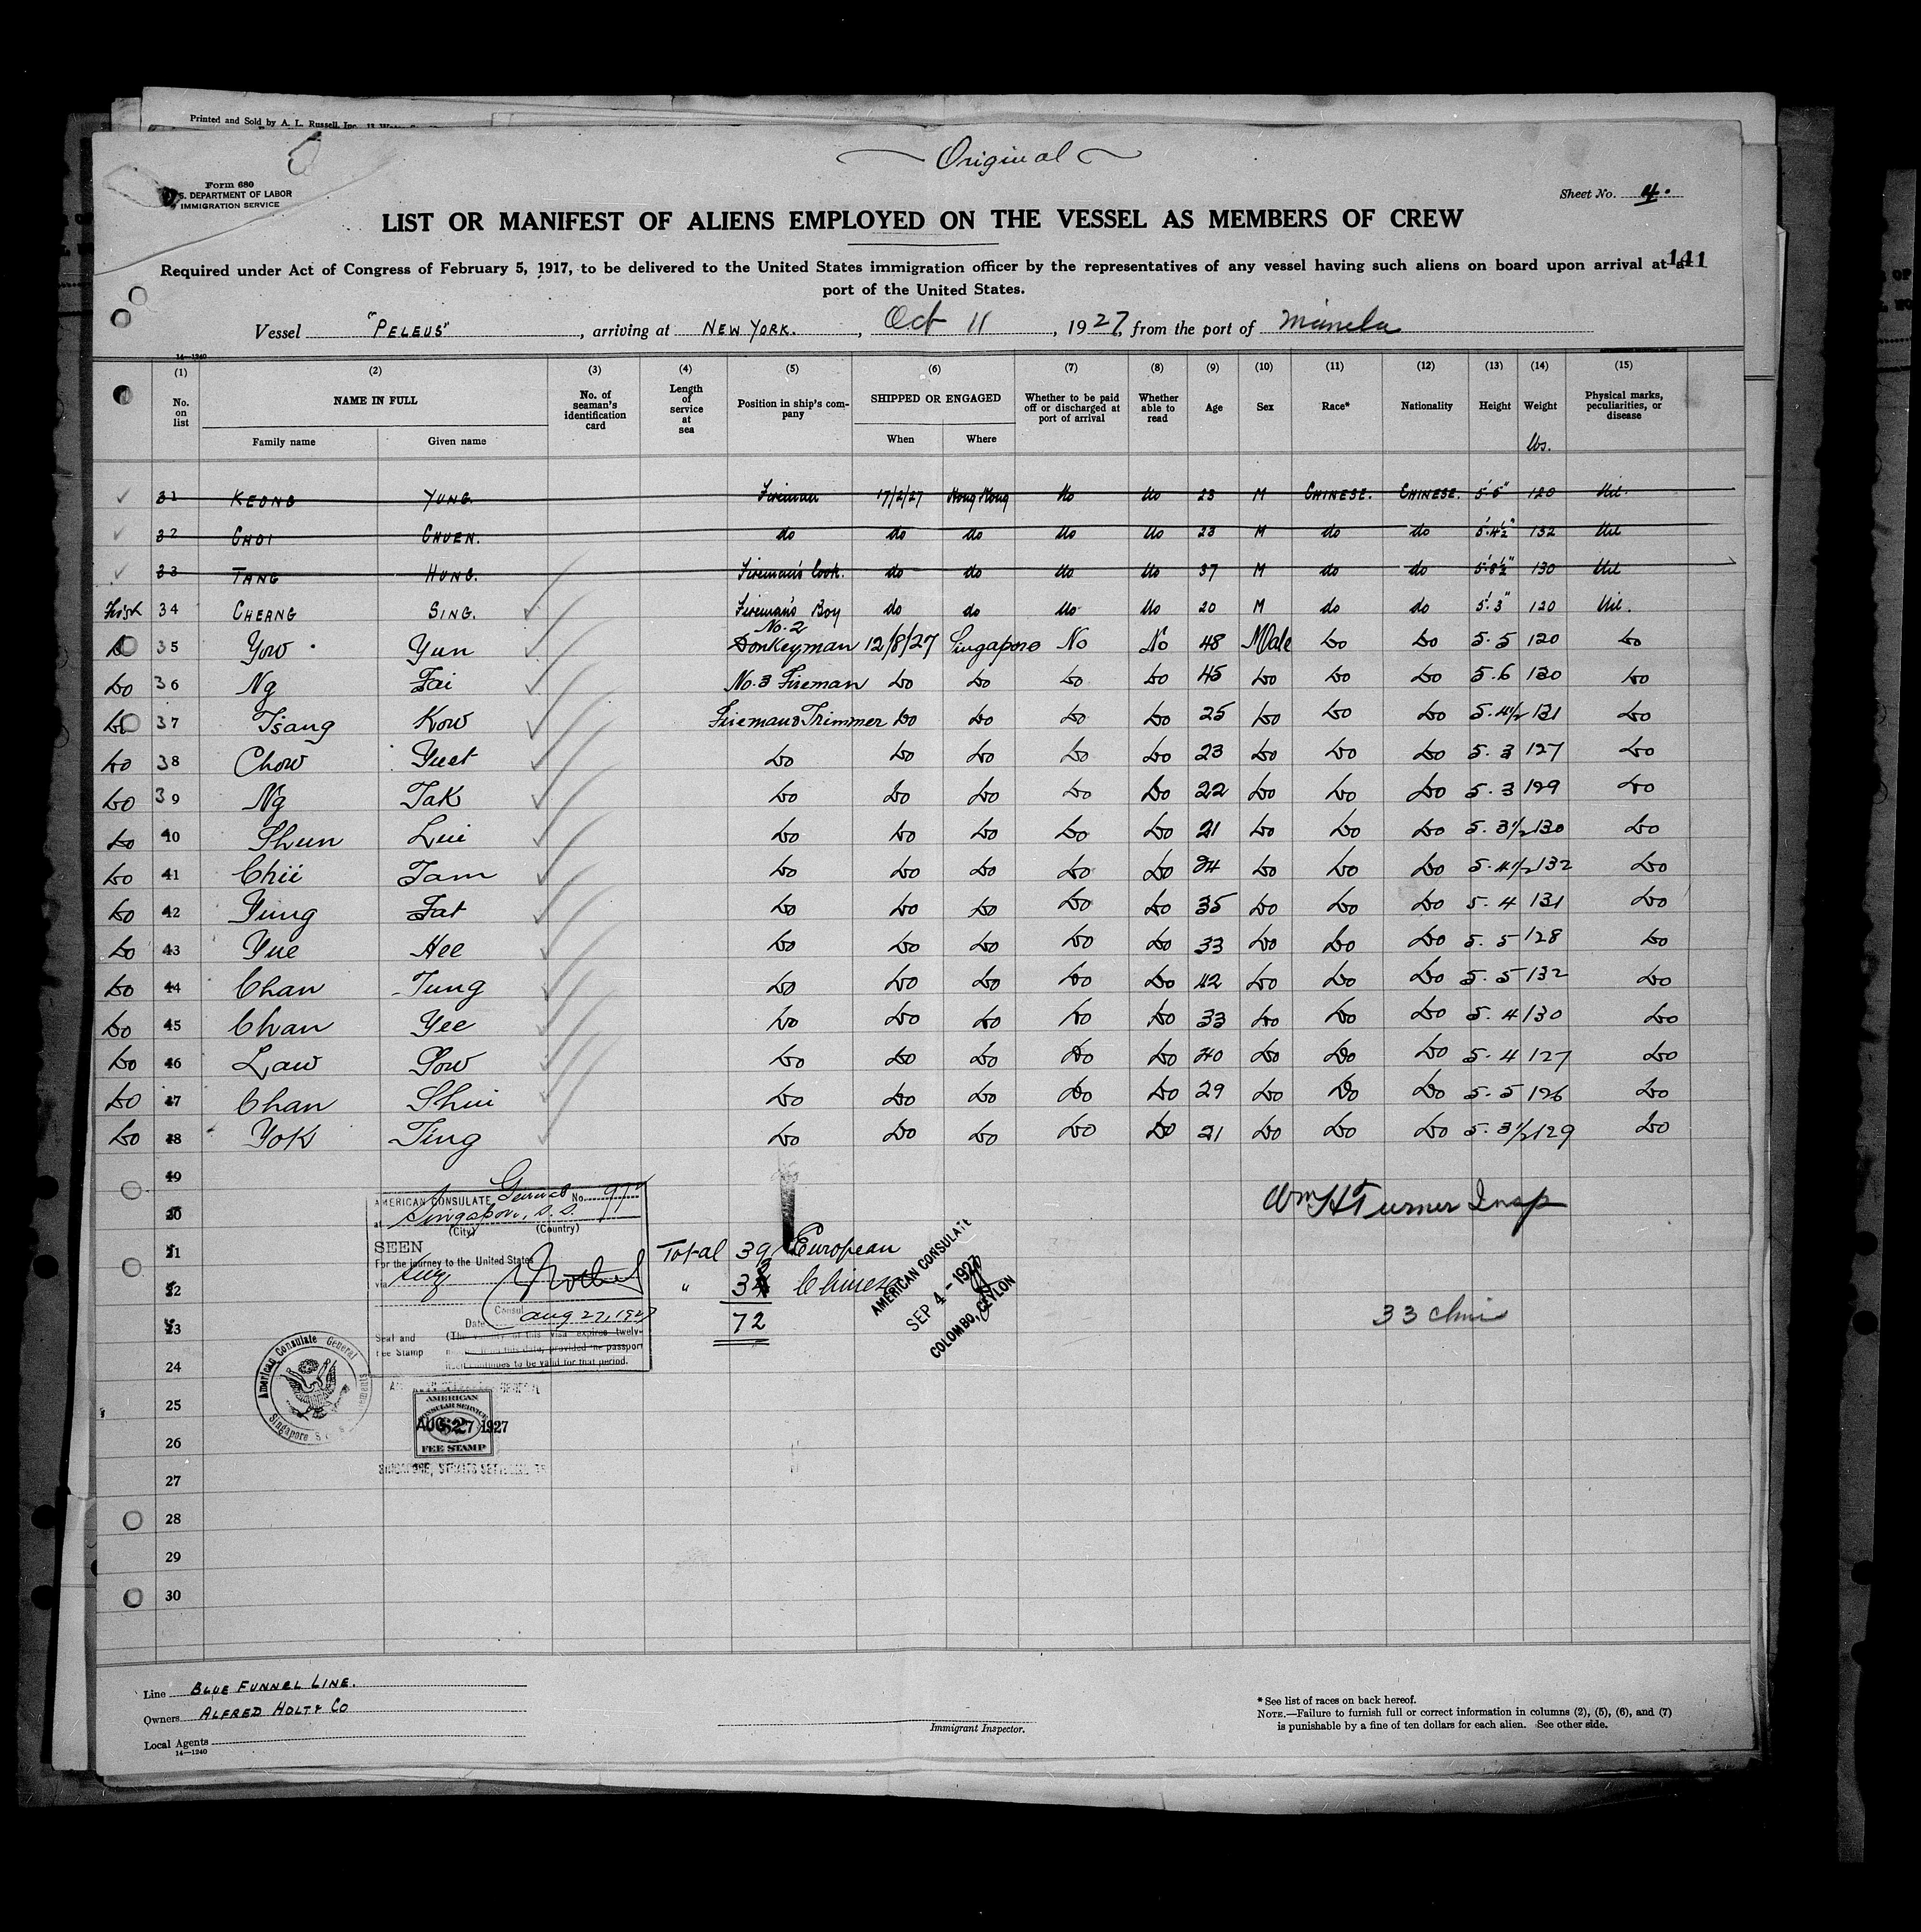 Printed and Sold by A. L. Russell, Inc.
Original
Form 680
U. S. DEPARTMENT OF LABOR
IMMIGRATION SERVICE
Sheet No. 4.
LIST OR MANIFEST OF ALIENS EMPLOYED ON THE VESSEL AS MEMBERS OF CREW
141
Required under Act of Congress of February 5, 1917, to be delivered to the United States immigration officer by the representatives of any vessel having such aliens on board upon arrival at a
port of the United States.
Vessel "PELEUS", arriving at NEW YORK., Oct 11, 1927, from the port of Manila
14—1240
(1) (2) (3) (4) (5) (6) (7) (8) (9) (10) (11) (12) (13) (14) (15)
No. on list NAME IN FULL No. of seaman's identification card Length of service at sea Position in ship's company SHIPPED OR ENGAGED Whether to be paid off or discharged at port of arrival Whether able to read Age Sex Race* Nationality Height Weight Physical marks, peculiarities, or disease
Family name Given name When Where lbs.
31 KEONG YUNG. Fireman 17/2/27 Hong Kong No No 23 M CHINESE. CHINESE. 5'.6" 120 Nil.
32 CHOI CHUEN. do do do No No 23 M do do 5'.4½" 132 Nil
33 TANG HUNG. Fireman's Cook. do do No No 37 M do do 5'.8½" 130 Nil
First 34 CHEANG SING. Fireman's Boy do do No No 20 M do do 5'.3" 120 Nil.
Do 35 Yow Yun No. 2 Donkeyman 12/8/27 Singapore No No 48 Male Do Do 5.5 120 Do
Do 36 Ng Fai No. 3 Fireman Do Do Do Do 45 Do Do Do 5.6 130 Do
Do 37 Tsang Kow Fireman & Trimmer Do Do Do Do 25 Do Do Do 5.4½ 131 Do
Do 38 Chow Yuet Do Do Do Do Do 23 Do Do Do 5.3 127 Do
Do 39 Ng Tak Do Do Do Do Do 22 Do Do Do 5.3 129 Do
Do 40 Shun Lui Do Do Do Do Do 21 Do Do Do 5.3½ 130 Do
Do 41 Chii Tam Do Do Do Do Do 24 Do Do Do 5.4½ 132 Do
Do 42 Fung Fat Do Do Do Do Do 35 Do Do Do 5.4 131 Do
Do 43 Yue Hee Do Do Do Do Do 33 Do Do Do 5.5 128 Do
Do 44 Chan Tung Do Do Do Do Do 42 Do Do Do 5.5 132 Do
Do 45 Chan Yee Do Do Do Do Do 33 Do Do Do 5.4 130 Do
Do 46 Law Pow Do Do Do Do Do 40 Do Do Do 5.4 127 Do
Do 47 Chan Shui Do Do Do Do Do 29 Do Do Do 5.5 126 Do
Do 48 Yok Ting Do Do Do Do Do 21 Do Do Do 5.3½ 129 Do
49
20
21
22
23
24
25
26
27
28
29
30
AMERICAN CONSULATE General No.
at Singapore, S.S.
(City) (Country)
SEEN
For the journey to the United States
via Suez
Consul
Date Aug 27, 1927
Seal and Fee Stamp
(The validity of this visa expires twelve
from this date, provided the passport
itself continues to be valid for that period.
American Consulate General Singapore
AMERICAN
CONSULAR SERVICE
AUG 27 1927
FEE STAMP
SINGAPORE, STRAITS SETTLEMENTS
Total 39 European
" 33 Chinese
72
AMERICAN CONSULATE
SEP 4 - 1927
COLOMBO, CEYLON
Wm H Turner Insp
33 Chin
Line BLUE FUNNEL LINE.
Owners ALFRED HOLT & CO
Local Agents
14—1240
Immigrant Inspector.
* See list of races on back hereof.
NOTE.—Failure to furnish full or correct information in columns (2), (5), (6), and (7)
is punishable by a fine of ten dollars for each alien. See other side.